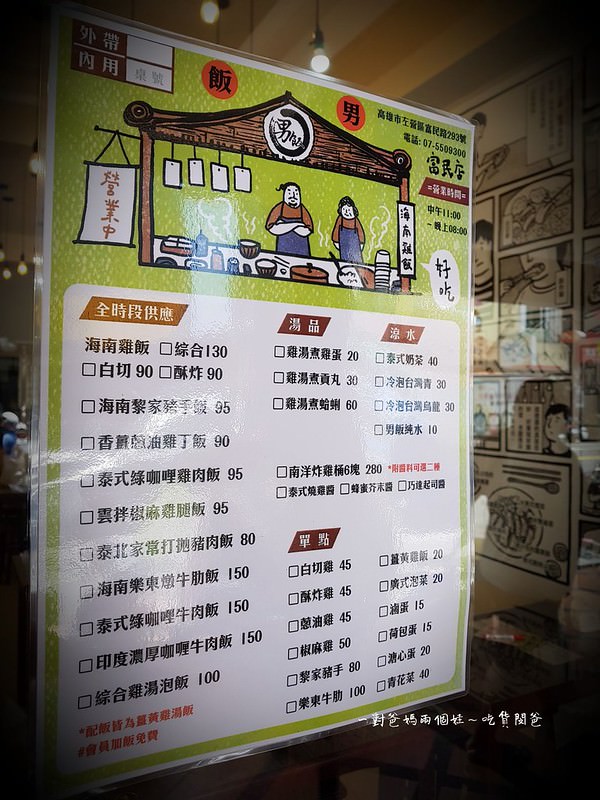 外帶
內用
桌號
飯
男
高雄市左營區富民路293號
電話: 07-5509300
富民店
=營業時間=
中午11:00
~晚上08:00
男飯
營業中
海南雞飯
好吃
全時段供應
海南雞飯 □綜合130
□白切 90 □酥炸 90
□海南黎家豬手飯 95
□香薑蔥油雞丁飯 90
□泰式綠咖哩雞肉飯 95
□雲拌椒麻雞腿飯 95
□泰北家常打拋豬肉飯 80
□海南樂東燉牛肋飯 150
□泰式綠咖哩牛肉飯 150
□印度濃厚咖哩牛肉飯 150
□綜合雞湯泡飯 100
*配飯皆為薑黃雞湯飯
#會員加飯免費
湯品
□雞湯煮雞蛋 20
□雞湯煮貢丸 30
□雞湯煮蛤蜊 60
涼水
□泰式奶茶 40
□冷泡台灣青 30
□冷泡台灣烏龍 30
□男飯純水 10
□南洋炸雞桶6塊 280 *附醬料可選二種
□泰式燒雞醬 □蜂蜜芥末醬 □巧達起司醬
單點
□白切雞 45
□酥炸雞 45
□蔥油雞 45
□椒麻雞 50
□黎家豬手 80
□樂東牛肋 100
□薑黃雞飯 20
□廣式泡菜 20
□滷蛋 15
□荷包蛋 15
□溏心蛋 20
□青花菜 40
一對爸媽兩個娃~吃貨闆爸